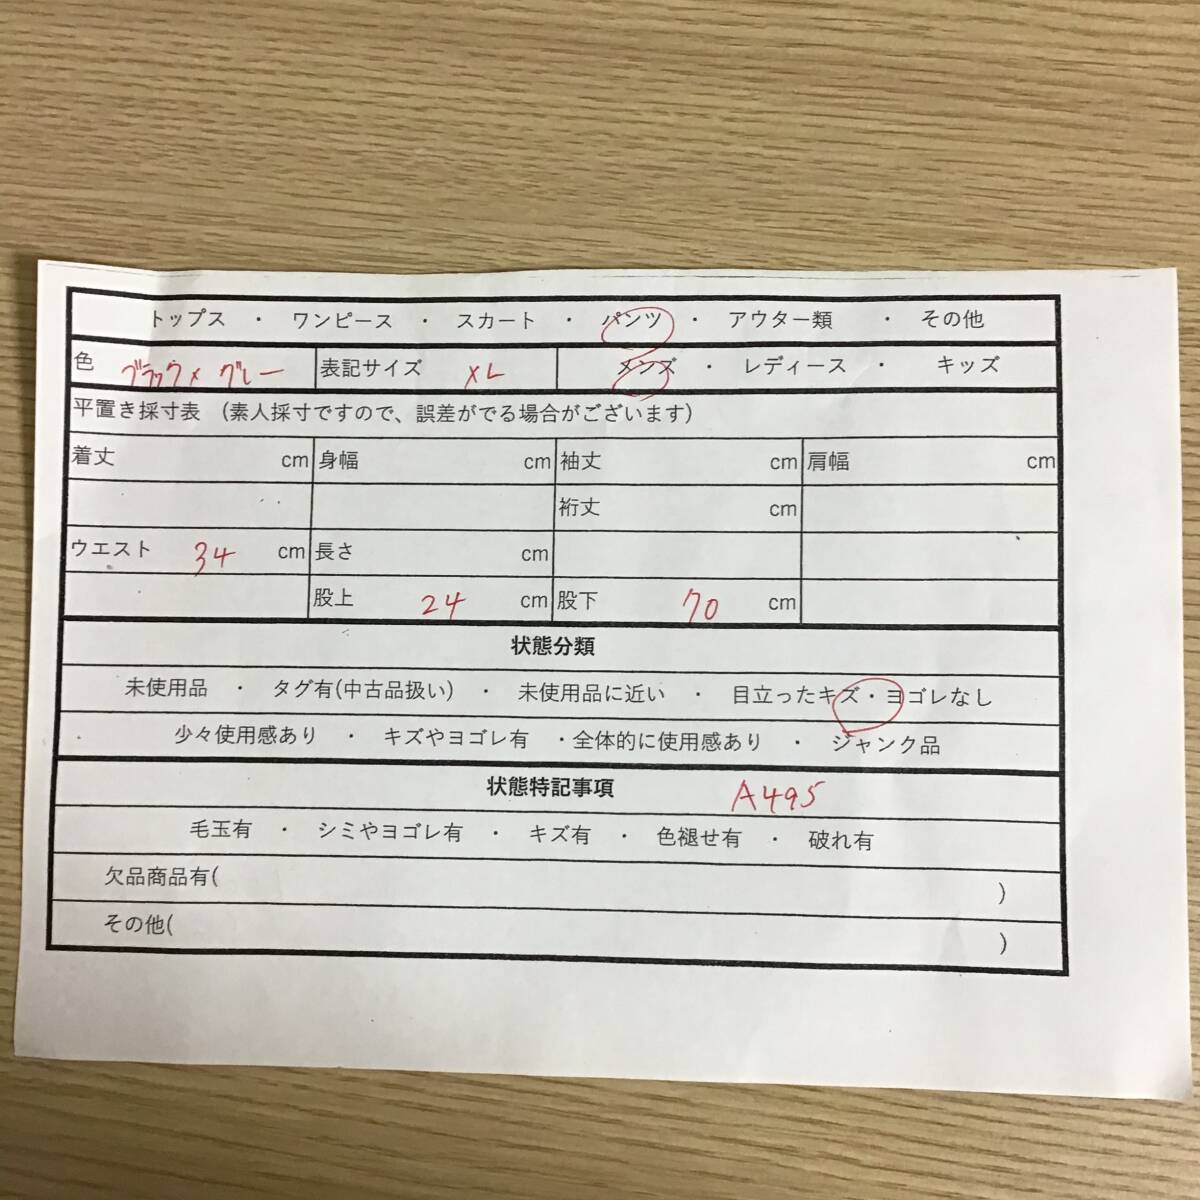 トップス ・ ワンピース ・ スカート ・ パンツ ・ アウター類 ・ その他
色 ブラック× グレー 表記サイズ XL メンズ ・ レディース ・ キッズ
平置き採寸表 (素人採寸ですので、誤差がでる場合がございます)
着丈 cm 身幅 cm 袖丈 cm 肩幅 cm
裄丈 cm
ウエスト 34 cm 長さ cm
股上 24 cm 股下 70 cm
状態分類
未使用品 ・ タグ有(中古品扱い) ・ 未使用品に近い ・ 目立ったキズ・ヨゴレなし
少々使用感あり ・ キズやヨゴレ有 ・全体的に使用感あり ・ ジャンク品
状態特記事項 A495
毛玉有 ・ シミやヨゴレ有 ・ キズ有 ・ 色褪せ有 ・ 破れ有
欠品商品有( )
その他( )